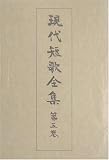 現代短歌全集
第五巻